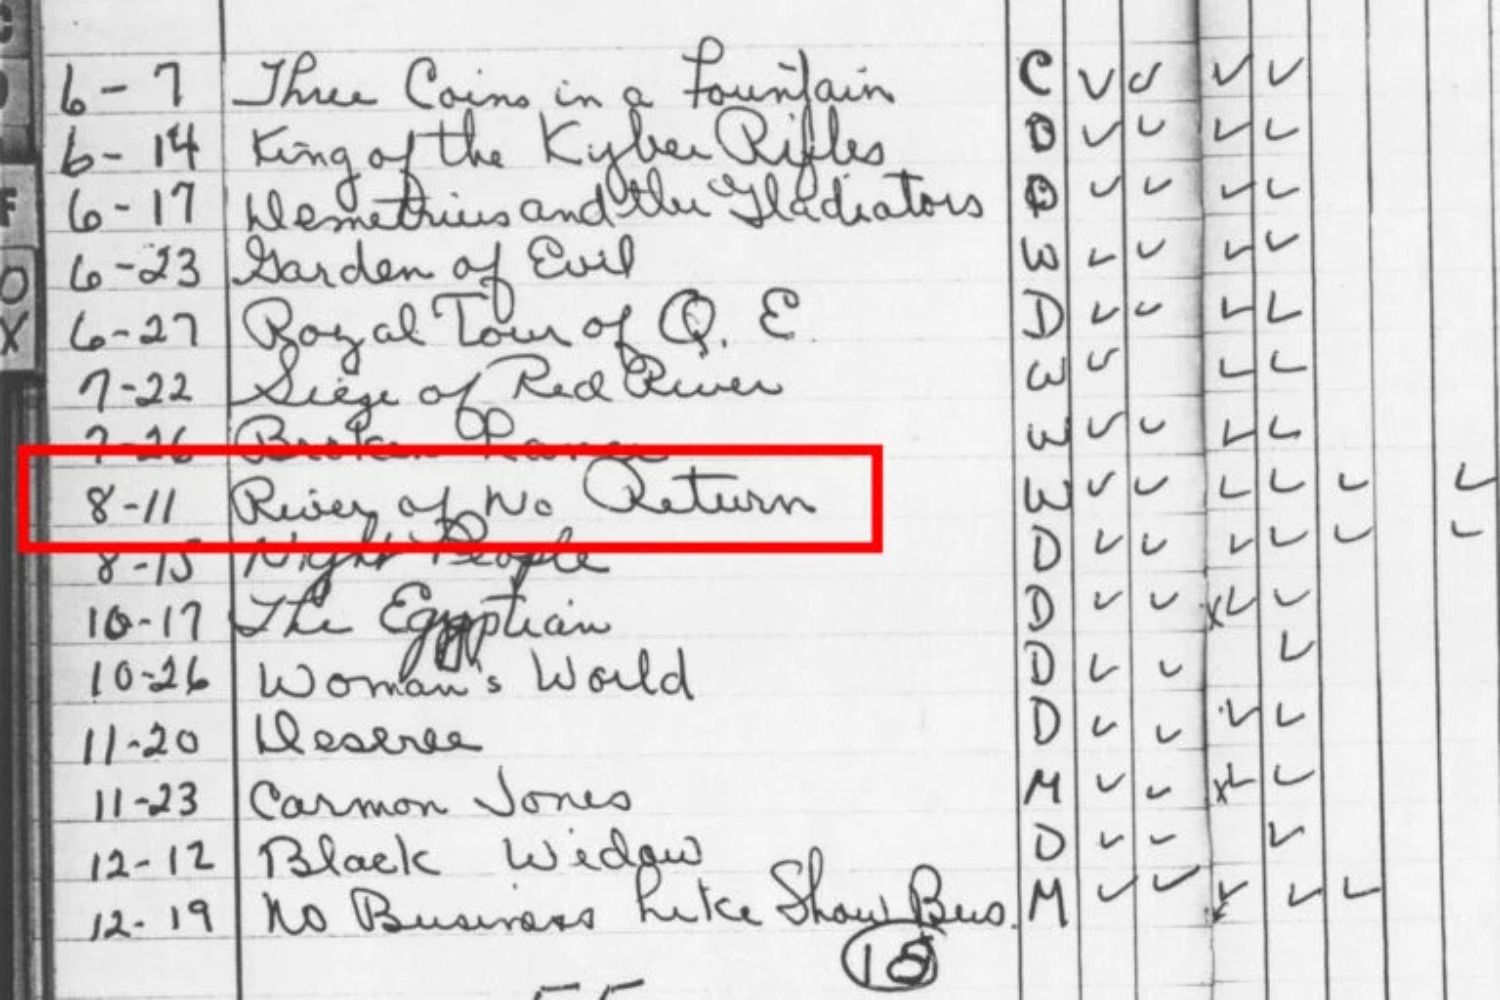 6-7 Three Coins in a Fountain C ✓ ✓ ✓ ✓
6-14 King of the Kyber Rifles D ✓ ✓ ✓ ✓
6-17 Demetrius and the Gladiators D ✓ ✓ ✓ ✓
F 6-23 Garden of Evil W ✓ ✓ ✓ ✓
O 6-27 Royal Tour of Q. E. D ✓ ✓ ✓ ✓
X 7-22 Siege of Red River W ✓ ✓ ✓
7-26 Broken Lance W ✓ ✓ ✓ ✓
8-11 River of No Return W ✓ ✓ ✓ ✓ ✓ ✓
8-15 Night People D ✓ ✓ ✓ ✓ ✓ ✓
10-17 The Egyptian D ✓ ✓ x✓ ✓
10-26 Woman's World D ✓ ✓ ✓
11-20 Desiree D ✓ ✓ ✓ ✓
11-23 Carmon Jones M ✓ ✓ x✓ ✓
12-12 Black Widow D ✓ ✓ ✓
12-19 No Business Like Show Bus. M ✓ ✓ ✓ ✓ ✓
18